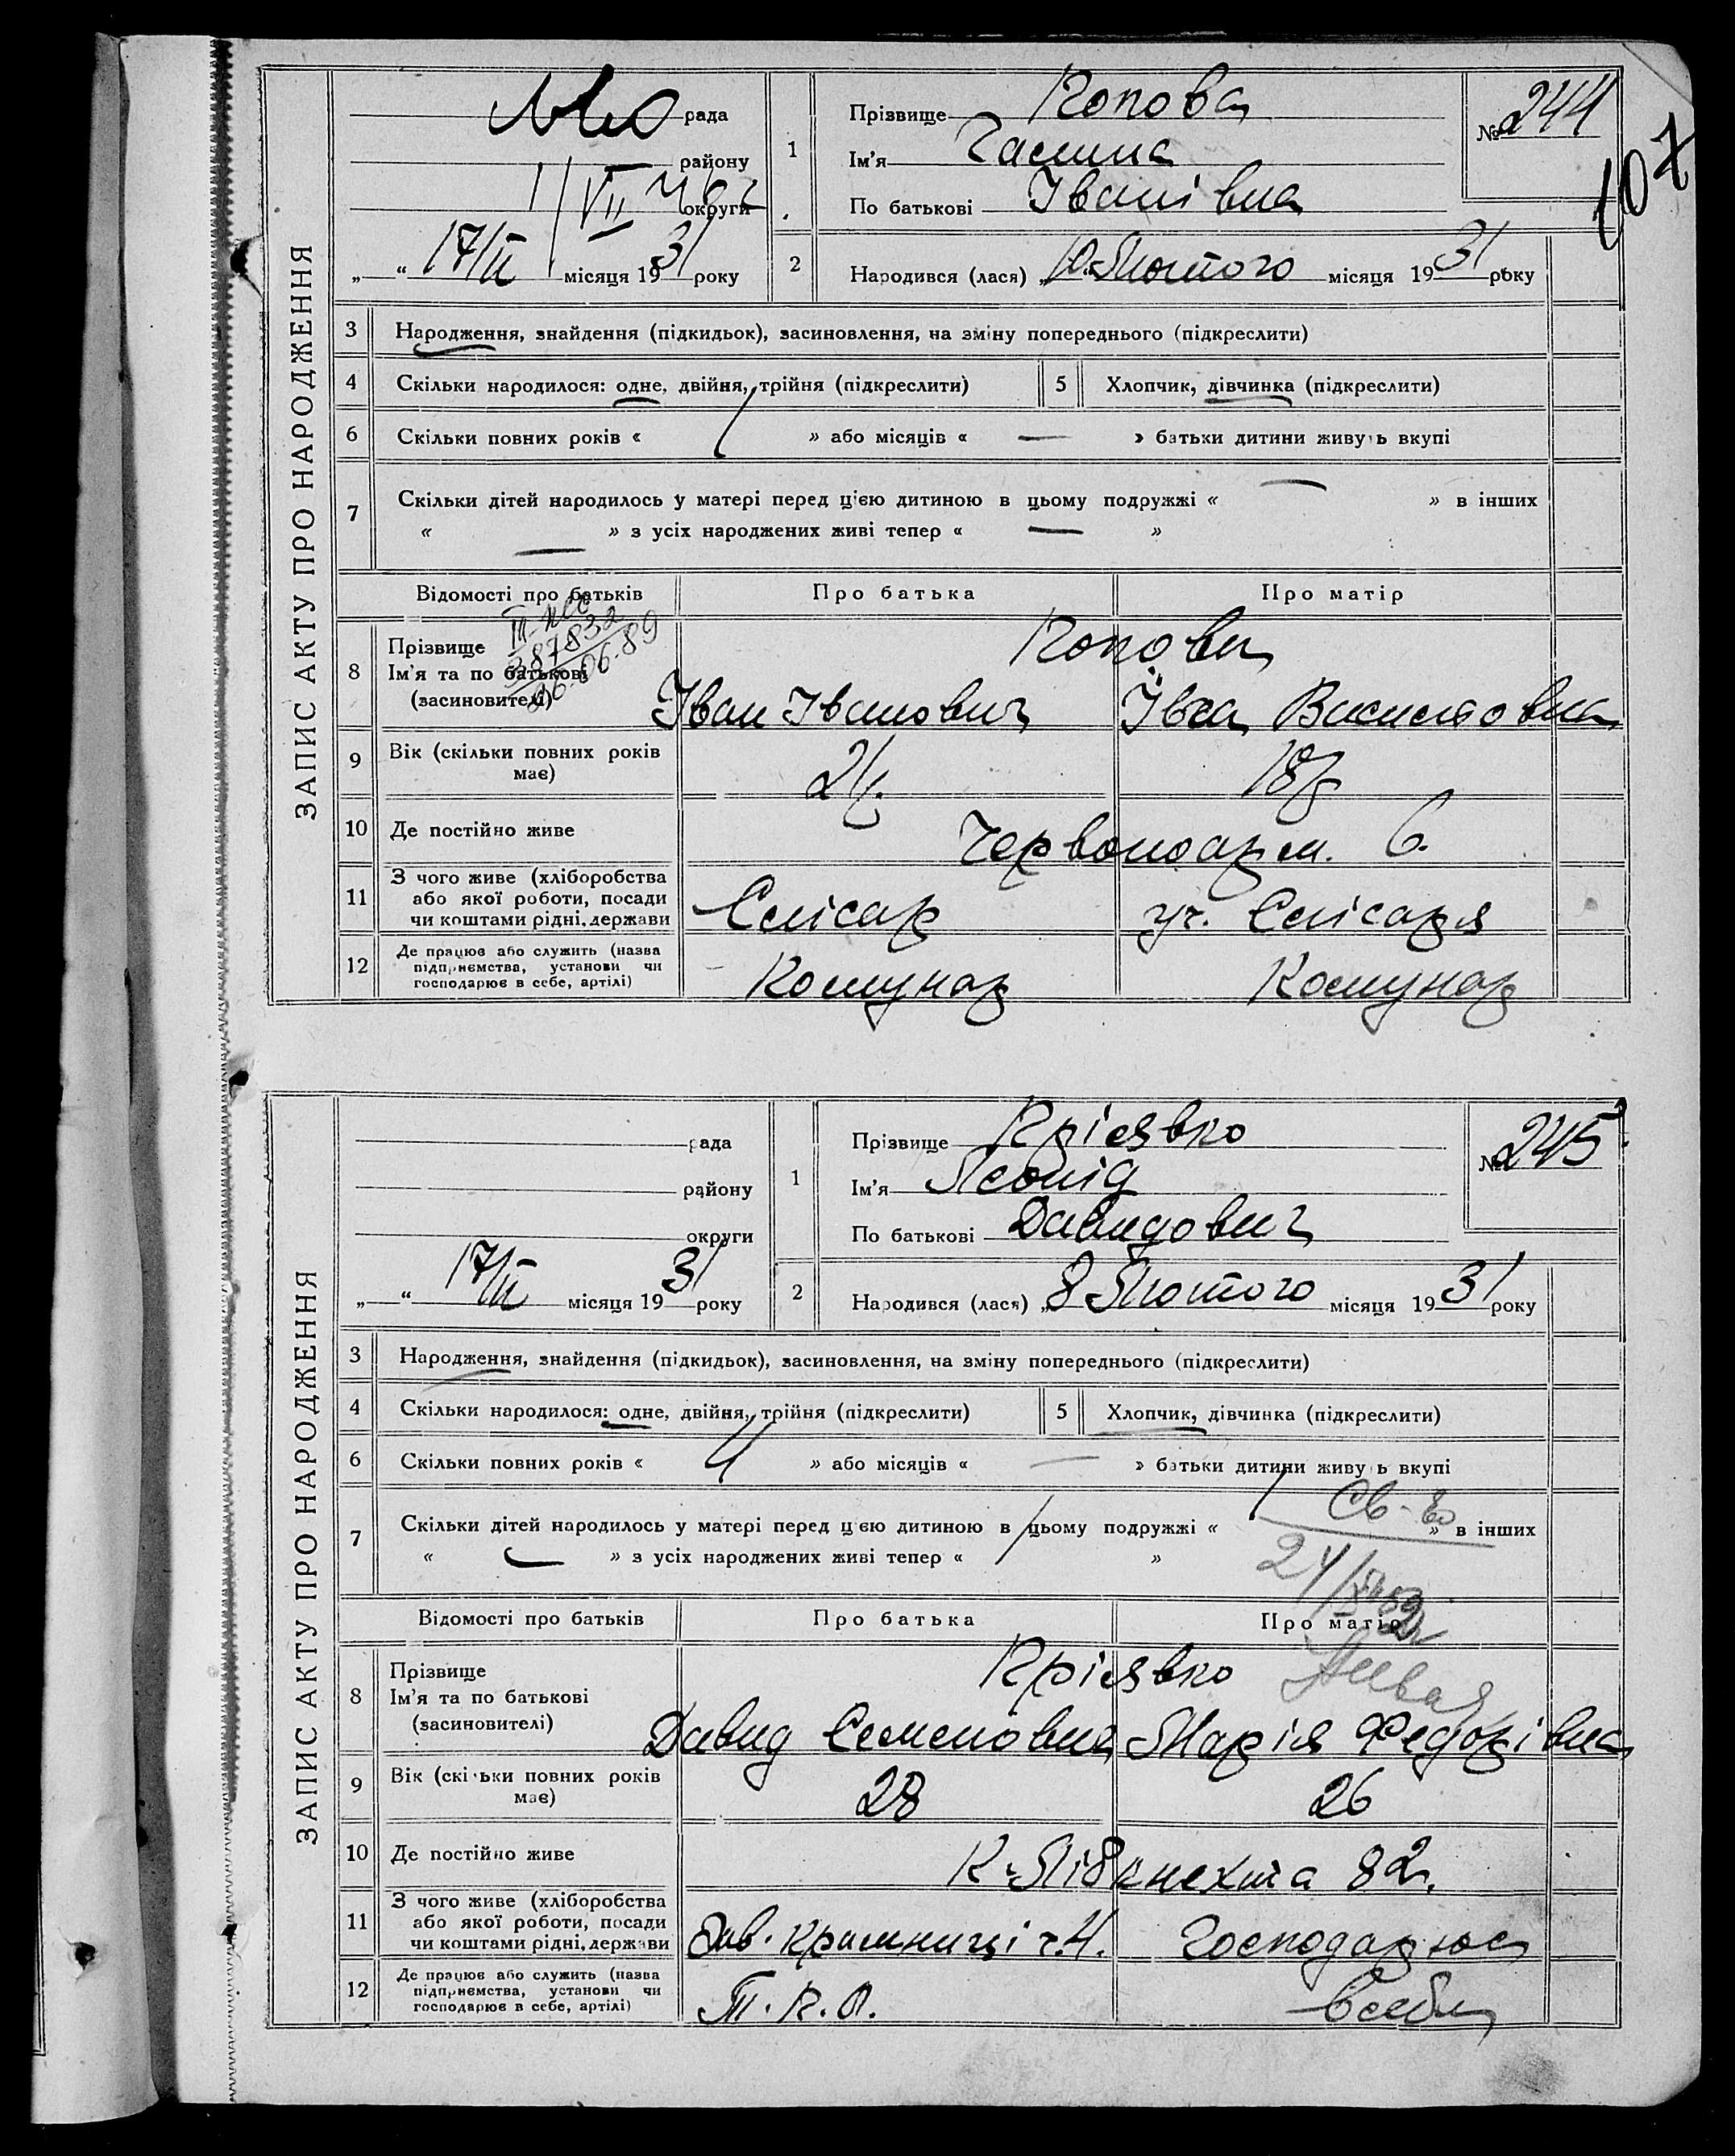 ЗАПИС АКТУ ПРО НАРОДЖЕННЯ
рада
району
округи
„ “ 17/II місяця 1931 року
1
Прізвище Попова
Ім'я Галина
По батькові Іванівна
№ 244
107
2
Народився (лася) „ 10 Лютого місяця 1931 року
3 Народження, знайдення (підкидьок), засиновлення, на зміну попереднього (підкреслити)
4 Скільки народилося: одне, двійня, трійня (підкреслити) 5 Хлопчик, дівчинка (підкреслити)
6 Скільки повних років « 1 » або місяців « — » батьки дитини живуть вкупі
7 Скільки дітей народилось у матері перед цією дитиною в цьому подружжі « — » в інших
« — » з усіх народжених живі тепер « — »
Відомості про батьків Про батька Про матір
387832
06.06.89
8 Прізвище
Ім'я та по батькові
(засиновителі)
Попови
Іван Іванович
9 Вік (скільки повних років має) 21 18
10 Де постійно живе Червоноарм. 6.
11 З чого живе (хліборобства або якої роботи, посади чи коштами рідні, держави Слісар уч. Слісаря
12 Де працює або служить (назва підприємства, установи чи господарює в себе, артілі) Комунар Комунар
ЗАПИС АКТУ ПРО НАРОДЖЕННЯ
рада
району
округи
„ “ 17/II місяця 1931 року
1
Прізвище
Ім'я Леонід
По батькові Давидович
№ 245
2
Народився (лася) „ 8 Лютого місяця 1931 року
3 Народження, знайдення (підкидьок), засиновлення, на зміну попереднього (підкреслити)
4 Скільки народилося: одне, двійня, трійня (підкреслити) 5 Хлопчик, дівчинка (підкреслити)
6 Скільки повних років « 4 » або місяців « — » батьки дитини живуть вкупі
7 Скільки дітей народилось у матері перед цією дитиною в цьому подружжі « 1 » в інших
« — » з усіх народжених живі тепер « 1 »
Св-во
Відомості про батьків Про батька Про матір
8 Прізвище
Ім'я та по батькові
(засиновителі)
Давид Семенович Марія Федорівна
9 Вік (скільки повних років має) 28 26
10 Де постійно живе К. Лібкнехта 82.
11 З чого живе (хліборобства або якої роботи, посади чи коштами рідні, держави Зав. крамниці ч. 4. Господарює
12 Де працює або служить (назва підприємства, установи чи господарює в себе, артілі) Т.К.О. в себе